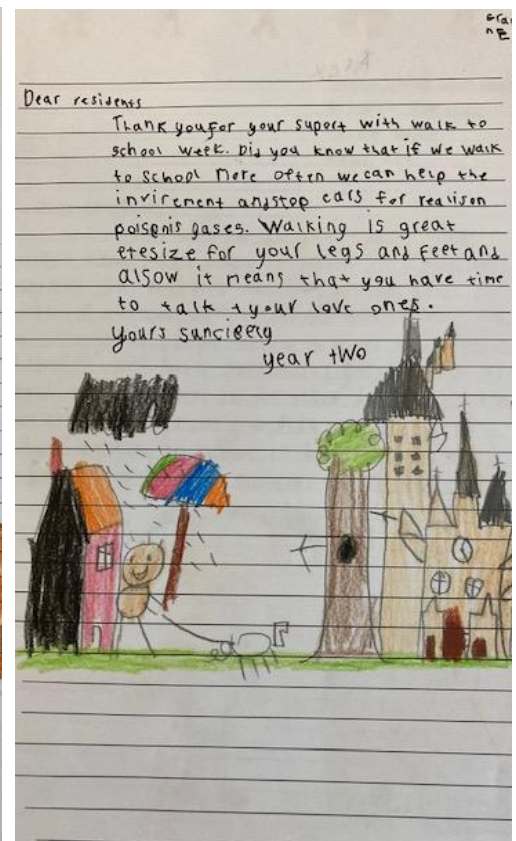 Dear residents
Thank you for your suport with walk to
school week. Did you know that if we walk
to school more often we can help the
invirement and stop cars for realison
poisenis gases. Walking is great
exesize for your legs and feet and
alsow it means that you have time
to talk t your love ones.
Yours suncieery
year two